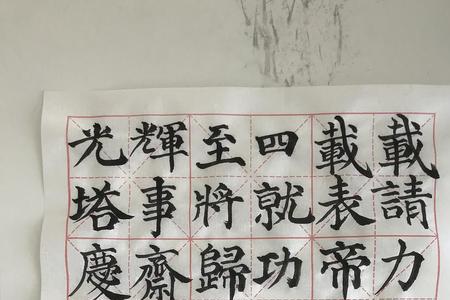 光輝至四載載
塔事將就表請
慶齋歸功帝力